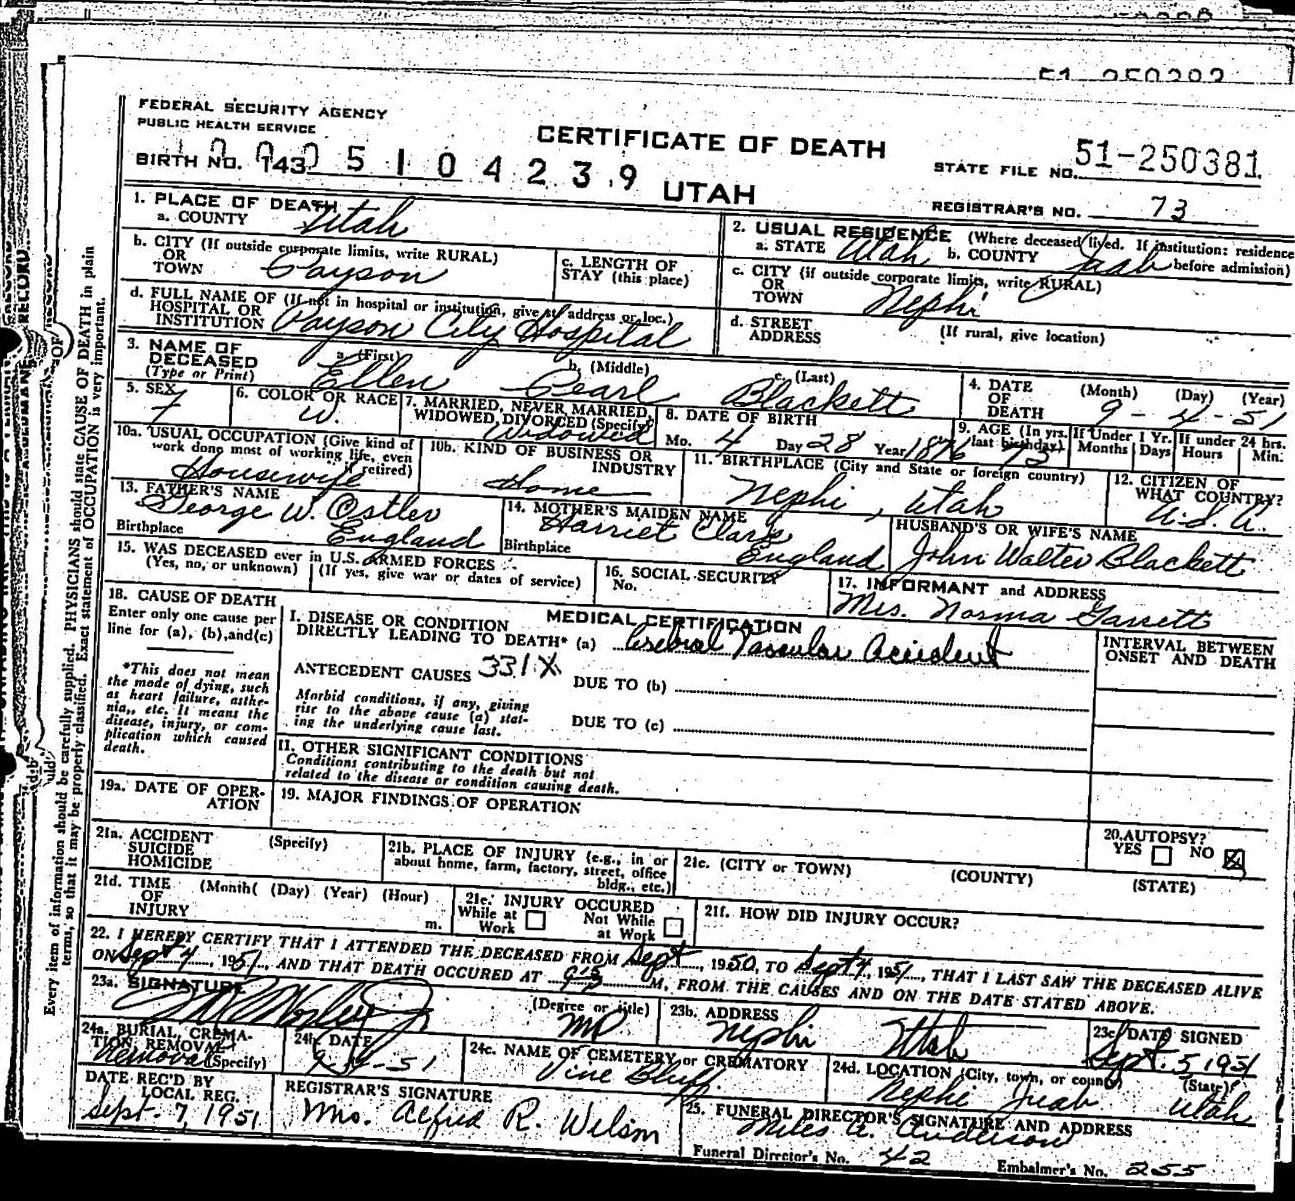 FEDERAL SECURITY AGENCY
PUBLIC HEALTH SERVICE
CERTIFICATE OF DEATH
BIRTH NO. 143 0 5 1 0 4 2 3 9
UTAH
STATE FILE NO. 51-250381
REGISTRAR'S NO. 73
1. PLACE OF DEATH
a. COUNTY Utah
b. CITY (If outside corporate limits, write RURAL)
OR
TOWN Payson
c. LENGTH OF
STAY (this place)
d. FULL NAME OF (If not in hospital or institution, give st. address or loc.)
HOSPITAL OR
INSTITUTION Payson City Hospital
2. USUAL RESIDENCE (Where deceased lived. If institution: residence
a. STATE Utah b. COUNTY Juab before admission)
c. CITY (if outside corporate limits, write RURAL)
OR
TOWN Nephi
d. STREET
ADDRESS
(If rural, give location)
3. NAME OF
DECEASED
(Type or Print)
a. (First) b. (Middle) c. (Last)
Ellen Pearl Blackett
4. DATE
OF
DEATH
(Month) (Day) (Year)
9-4-51
5. SEX
F
6. COLOR OR RACE
W.
7. MARRIED, NEVER MARRIED,
WIDOWED, DIVORCED (Specify)
Widowed
8. DATE OF BIRTH
Mo. 4 Day 28 Year 1876
9. AGE (In yrs.
last birthday) 75
If Under 1 Yr.
Months Days
If under 24 hrs.
Hours Min.
10a. USUAL OCCUPATION (Give kind of
work done most of working life, even
if retired)
Housewife
10b. KIND OF BUSINESS OR
INDUSTRY
Home
11. BIRTHPLACE (City and State or foreign country)
Nephi, Utah
12. CITIZEN OF
WHAT COUNTRY?
U.S.A.
13. FATHER'S NAME
George W. Ostler
Birthplace England
14. MOTHER'S MAIDEN NAME
Harriet Clark
Birthplace England
HUSBAND'S OR WIFE'S NAME
John Walter Blackett
15. WAS DECEASED ever in U.S. ARMED FORCES
(Yes, no, or unknown) (If yes, give war or dates of service)
16. SOCIAL SECURITY
No.
17. INFORMANT and ADDRESS
Mrs. Norma Garrett
18. CAUSE OF DEATH
Enter only one cause per
line for (a), (b), and (c)
*This does not mean
the mode of dying, such
as heart failure, asthe-
nia,, etc. It means the
disease, injury, or com-
plication which caused
death.
MEDICAL CERTIFICATION
I. DISEASE OR CONDITION
DIRECTLY LEADING TO DEATH* (a) Cerebral Vascular Accident
ANTECEDENT CAUSES 331X
DUE TO (b)
Morbid conditions, if any, giving
rise to the above cause (a) stat-
ing the underlying cause last.
DUE TO (c)
II. OTHER SIGNIFICANT CONDITIONS
Conditions contributing to the death but not
related to the disease or condition causing death.
INTERVAL BETWEEN
ONSET AND DEATH
19a. DATE OF OPER-
ATION
19. MAJOR FINDINGS OF OPERATION
20. AUTOPSY?
YES NO X
21a. ACCIDENT
SUICIDE
HOMICIDE
(Specify)
21b. PLACE OF INJURY (e.g., in or
about home, farm, factory, street, office
bldg., etc.)
21c. (CITY or TOWN) (COUNTY) (STATE)
21d. TIME
OF
INJURY
(Month( (Day) (Year) (Hour)
m.
21e. INJURY OCCURED
While at
Work
Not While
at Work
21f. HOW DID INJURY OCCUR?
22. I HEREBY CERTIFY THAT I ATTENDED THE DECEASED FROM Sept, 1950, TO Sept 4, 1951, THAT I LAST SAW THE DECEASED ALIVE
ON Sept 4, 1951, AND THAT DEATH OCCURED AT 9:15 M, FROM THE CAUSES AND ON THE DATE STATED ABOVE.
23a. SIGNATURE
(Degree or title)
MD
23b. ADDRESS
Nephi Utah
23c. DATE SIGNED
Sept. 5, 1951
24a. BURIAL, CREMA-
TION, REMOVAL
(Specify)
Removal
24b. DATE
24c. NAME OF CEMETERY or CREMATORY
Vine Bluff
24d. LOCATION (City, town, or county) (State)
Nephi Juab Utah
DATE REC'D BY
LOCAL REG.
Sept. 7, 1951
REGISTRAR'S SIGNATURE
Mrs. Alfred R. Wilson
25. FUNERAL DIRECTOR'S SIGNATURE AND ADDRESS
Miles A. Anderson
Funeral Director's No. 42 Embalmer's No. 255
Every item of information should be carefully supplied. PHYSICIANS should state CAUSE OF DEATH in plain
terms, so that it may be properly classified. Exact statement of OCCUPATION is very important.